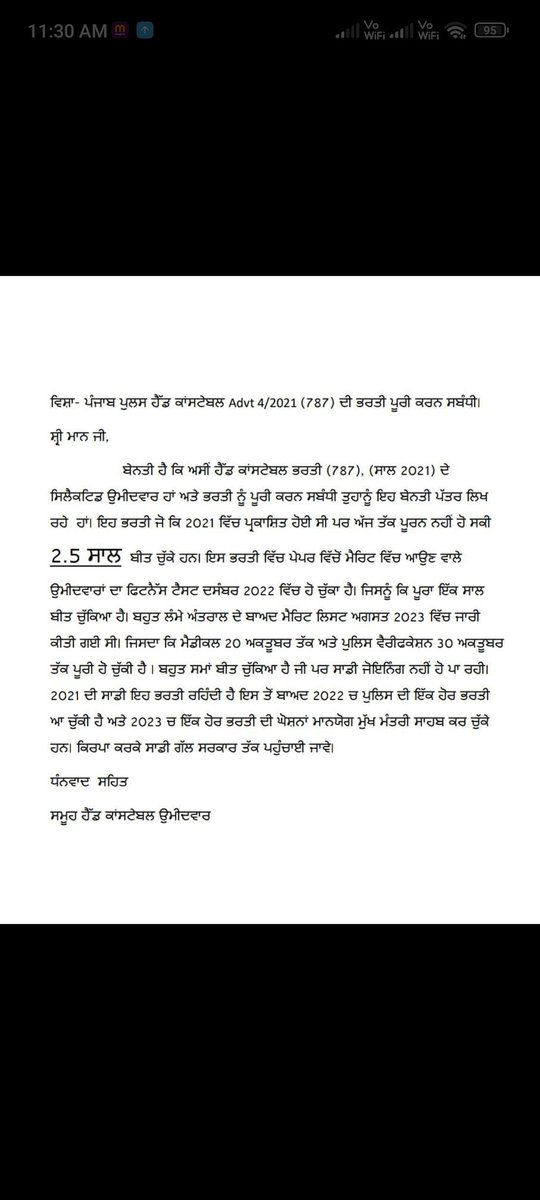 11:30 AM
Vo WiFi Vo WiFi 95
ਵਿਸ਼ਾ- ਪੰਜਾਬ ਪੁਲਸ ਹੈੱਡ ਕਾਂਸਟੇਬਲ Advt 4/2021 (787) ਦੀ ਭਰਤੀ ਪੂਰੀ ਕਰਨ ਸਬੰਧੀ।
ਸ਼੍ਰੀ ਮਾਨ ਜੀ,
ਬੇਨਤੀ ਹੈ ਕਿ ਅਸੀਂ ਹੈੱਡ ਕਾਂਸਟੇਬਲ ਭਰਤੀ (787), (ਸਾਲ 2021) ਦੇ
ਸਿਲੈਕਟਿਡ ਉਮੀਦਵਾਰ ਹਾਂ ਅਤੇ ਭਰਤੀ ਨੂੰ ਪੂਰੀ ਕਰਨ ਸਬੰਧੀ ਤੁਹਾਨੂੰ ਇਹ ਬੇਨਤੀ ਪੱਤਰ ਲਿਖ
ਰਹੇ ਹਾਂ। ਇਹ ਭਰਤੀ ਜੋ ਕਿ 2021 ਵਿੱਚ ਪ੍ਰਕਾਸ਼ਿਤ ਹੋਈ ਸੀ ਪਰ ਅੱਜ ਤੱਕ ਪੂਰਨ ਨਹੀਂ ਹੋ ਸਕੀ
2.5 ਸਾਲ ਬੀਤ ਚੁੱਕੇ ਹਨ। ਇਸ ਭਰਤੀ ਵਿੱਚ ਪੇਪਰ ਵਿੱਚੋਂ ਮੈਰਿਟ ਵਿੱਚ ਆਉਣ ਵਾਲੇ
ਉਮੀਦਵਾਰਾਂ ਦਾ ਫਿਟਨੈੱਸ ਟੈਸਟ ਦਸੰਬਰ 2022 ਵਿੱਚ ਹੋ ਚੁੱਕਾ ਹੈ। ਜਿਸਨੂੰ ਕਿ ਪੂਰਾ ਇੱਕ ਸਾਲ
ਬੀਤ ਚੁੱਕਿਆ ਹੈ। ਬਹੁਤ ਲੰਮੇ ਅੰਤਰਾਲ ਦੇ ਬਾਅਦ ਮੈਰਿਟ ਲਿਸਟ ਅਗਸਤ 2023 ਵਿੱਚ ਜਾਰੀ
ਕੀਤੀ ਗਈ ਸੀ। ਜਿਸਦਾ ਕਿ ਮੈਡੀਕਲ 20 ਅਕਤੂਬਰ ਤੱਕ ਅਤੇ ਪੁਲਿਸ ਵੈਰੀਫਕੇਸ਼ਨ 30 ਅਕਤੂਬਰ
ਤੱਕ ਪੂਰੀ ਹੋ ਚੁੱਕੀ ਹੈ । ਬਹੁਤ ਸਮਾਂ ਬੀਤ ਚੁੱਕਿਆ ਹੈ ਜੀ ਪਰ ਸਾਡੀ ਜੋਇਨਿੰਗ ਨਹੀਂ ਹੋ ਪਾ ਰਹੀ।
2021 ਦੀ ਸਾਡੀ ਇਹ ਭਰਤੀ ਰਹਿੰਦੀ ਹੈ ਇਸ ਤੋਂ ਬਾਅਦ 2022 ਚ ਪੁਲਿਸ ਦੀ ਇੱਕ ਹੋਰ ਭਰਤੀ
ਆ ਚੁੱਕੀ ਹੈ ਅਤੇ 2023 ਚ ਇੱਕ ਹੋਰ ਭਰਤੀ ਦੀ ਘੋਸ਼ਨਾਂ ਮਾਨਯੋਗ ਮੁੱਖ ਮੰਤਰੀ ਸਾਹਬ ਕਰ ਚੁੱਕੇ
ਹਨ। ਕਿਰਪਾ ਕਰਕੇ ਸਾਡੀ ਗੱਲ ਸਰਕਾਰ ਤੱਕ ਪਹੁੰਚਾਈ ਜਾਵੇ।
ਧੰਨਵਾਦ ਸਹਿਤ
ਸਮੂਹ ਹੈੱਡ ਕਾਂਸਟੇਬਲ ਉਮੀਦਵਾਰ